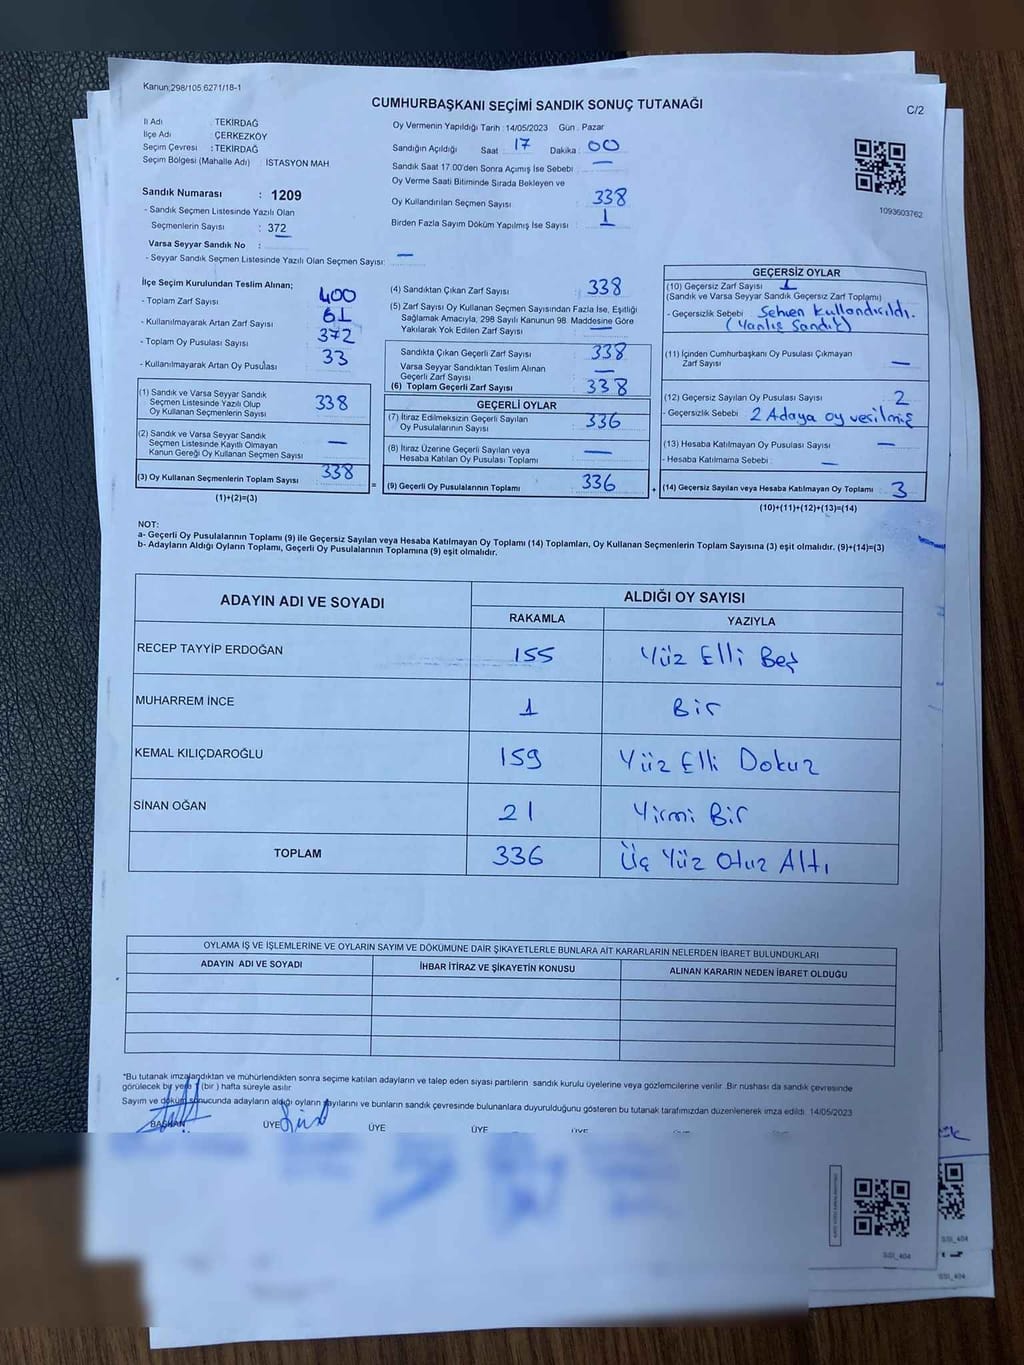 Kanun;298/105 6271/18-1
CUMHURBAŞKANI SEÇİMİ SANDIK SONUÇ TUTANAĞI
C/2
İl Adı : TEKİRDAĞ
İlçe Adı : ÇERKEZKÖY
Seçim Çevresi : TEKİRDAĞ
Seçim Bölgesi (Mahalle Adı) : İSTASYON MAH
Oy Vermenin Yapıldığı Tarih : 14/05/2023 Gün : Pazar
Sandığın Açıldığı Saat 17 Dakika : 00
Sandık Saat 17.00'den Sonra Açımış İse Sebebi : —
Oy Verme Saati Bitiminde Sırada Bekleyen ve
Oy Kullandırılan Seçmen Sayısı 338
Birden Fazla Sayım Döküm Yapılmış İse Sayısı : 1
1093603762
Sandık Numarası : 1209
- Sandık Seçmen Listesinde Yazılı Olan
Seçmenlerin Sayısı : 372
Varsa Seyyar Sandık No :
- Seyyar Sandık Seçmen Listesinde Yazılı Olan Seçmen Sayısı: —
İlçe Seçim Kurulundan Teslim Alınan;
- Toplam Zarf Sayısı 400
- Kullanılmayarak Artan Zarf Sayısı 61
- Toplam Oy Pusulası Sayısı 372
- Kullanılmayarak Artan Oy Pusulası 33
(1) Sandık ve Varsa Seyyar Sandık
Seçmen Listesinde Yazılı Olup
Oy Kullanan Seçmenlerin Sayısı 338
(2) Sandık ve Varsa Seyyar Sandık
Seçmen Listesinde Kayıtlı Olmayan
Kanun Gereği Oy Kullanan Seçmen Sayısı —
(3) Oy Kullanan Seçmenlerin Toplam Sayısı 338
(1)+(2)=(3)
(4) Sandıktan Çıkan Zarf Sayısı 338
(5) Zarf Sayısı Oy Kullanan Seçmen Sayısından Fazla İse, Eşitliği
Sağlamak Amacıyla, 298 Sayılı Kanunun 98. Maddesine Göre
Yakılarak Yok Edilen Zarf Sayısı —
Sandıkta Çıkan Geçerli Zarf Sayısı 338
Varsa Seyyar Sandıktan Teslim Alınan
Geçerli Zarf Sayısı —
(6) Toplam Geçerli Zarf Sayısı 338
GEÇERLİ OYLAR
(7) İtiraz Edilmeksizin Geçerli Sayılan
Oy Pusulalarının Sayısı 336
(8) İtiraz Üzerine Geçerli Sayılan veya
Hesaba Katılan Oy Pusulası Toplamı —
= (9) Geçerli Oy Pusulalarının Toplamı 336
GEÇERSİZ OYLAR
(10) Geçersiz Zarf Sayısı 1
(Sandık ve Varsa Seyyar Sandık Geçersiz Zarf Toplamı)
- Geçersizlik Sebebi Sehven kullandırıldı.
(Yanlış Sandık)
(11) İçinden Cumhurbaşkanı Oy Pusulası Çıkmayan
Zarf Sayısı —
(12) Geçersiz Sayılan Oy Pusulası Sayısı 2
- Geçersizlik Sebebi : 2 Adaya oy verilmiş
(13) Hesaba Katılmayan Oy Pusulası Sayısı —
- Hesaba Katılmama Sebebi : —
+ (14) Geçersiz Sayılan veya Hesaba Katılmayan Oy Toplamı 3
(10)+(11)+(12)+(13)=(14)
NOT:
a- Geçerli Oy Pusulalarının Toplamı (9) ile Geçersiz Sayılan veya Hesaba Katılmayan Oy Toplamı (14) Toplamları, Oy Kullanan Seçmenlerin Toplam Sayısına (3) eşit olmalıdır. (9)+(14)=(3)
b- Adayların Aldığı Oyların Toplamı, Geçerli Oy Pusulalarının Toplamına (9) eşit olmalıdır.
ADAYIN ADI VE SOYADI ALDIĞI OY SAYISI
RAKAMLA YAZIYLA
RECEP TAYYİP ERDOĞAN 155 Yüz Elli Beş
MUHARREM İNCE 1 Bir
KEMAL KILIÇDAROĞLU 159 Yüz Elli Dokuz
SİNAN OĞAN 21 Yirmi Bir
TOPLAM 336 Üç Yüz Otuz Altı
OYLAMA İŞ VE İŞLEMLERİNE VE OYLARIN SAYIM VE DÖKÜMUNE DAİR ŞİKAYETLERLE BUNLARA AİT KARARLARIN NELERDEN İBARET BULUNDUKLARI
ADAYIN ADI VE SOYADI İHBAR İTİRAZ VE ŞİKAYETİN KONUSU ALINAN KARARIN NEDEN İBARET OLDUĞU
*Bu tutanak imzalandıktan ve mühürlendikten sonra seçime katılan adayların ve talep eden siyasi partilerin sandık kurulu üyelerine veya gözlemcilerine verilir. Bir nüshası da sandık çevresinde
görülecek bir yere 1 (bir) hafta süreyle asılır
Sayım ve döküm sonucunda adayların aldığı oyların sayılarını ve bunların sandık çevresinde bulunanlara duyurulduğunu gösteren bu tutanak tarafımızdan düzenlenerek imza edildi. 14/05/2023
BAŞKAN ÜYE ÜYE ÜYE
SSI_404
SSI_404
SSI_404